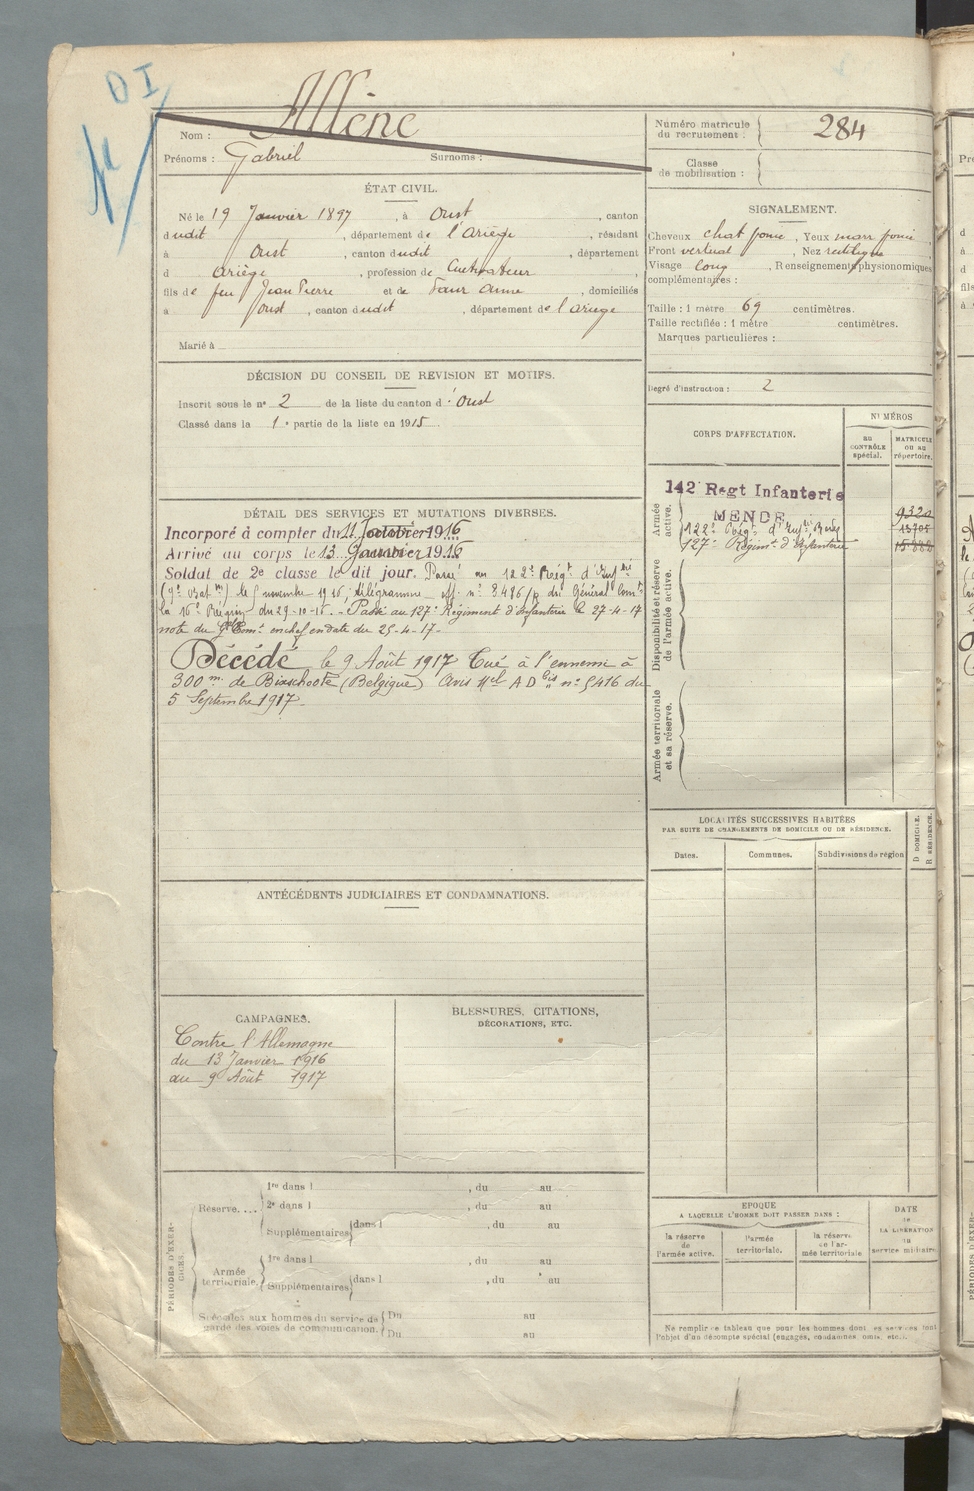 D I
Nom : Allène
Prénoms : Gabriel Surnoms :
Numéro matricule du recrutement : 284
Classe de mobilisation :
ÉTAT CIVIL.
Né le 19 Janvier 1897, à Oust, canton
dudit, département de l'Ariège, résidant
à Oust, canton dudit, département
d Ariège, profession de Cultivateur,
fils de feu Jean Pierre et de Faur Anne, domiciliés
à Oust, canton dudit, département de l'Ariège
Marié à
SIGNALEMENT.
Cheveux chat foncé, Yeux marr foncé,
Front vertical, Nez rectiligne
Visage long, Renseignements physionomiques
complémentaires :
Taille : 1 mètre 69 centimètres.
Taille rectifiée : 1 mètre centimètres.
Marques particulières :
Degré d'instruction : 2
DÉCISION DU CONSEIL DE REVISION ET MOTIFS.
Inscrit sous le nº 2 de la liste du canton d'Oust
Classé dans la 1e partie de la liste en 1915.
CORPS D'AFFECTATION.
NUMÉROS
au CONTRÔLE spécial.
MATRICULE ou au répertoire.
Armée active.
142e Regt Infanterie
MENDE 9320
122e Régt d'Infrie 13705
127e Régimt d'Infanterie 15888
Disponibilité et réserve de l'armée active.
Armée territoriale et sa réserve.
DÉTAIL DES SERVICES ET MUTATIONS DIVERSES.
Incorporé à compter du 11 Janvier 1916
Arrivé au corps le 13 Janvier 1916
Soldat de 2e classe le dit jour. Passé au 122e Régt d'Infrie
(9e Bat on) le 5 novembre 1916, télégramme off. nº 8486/p. du Général Comt
la 16e Région du 29-10-16. - Passé au 127e Régiment d'Infanterie le 27-4-17
note du Gal Comt en chef en date du 25-4-17-
Décédé le 9 Août 1917 Tué à l'ennemi à
300 m. de Bixschoote (Belgique) Avis Mel A D bis nº 5416 du
5 Septembre 1917.
LOCALITÉS SUCCESSIVES HABITÉES
PAR SUITE DE CHANGEMENTS DE DOMICILE OU DE RÉSIDENCE.
Dates. Communes. Subdivisions de région
D DOMICILE.
R RÉSIDENCE.
ANTÉCÉDENTS JUDICIAIRES ET CONDAMNATIONS.
CAMPAGNES.
Contre l'Allemagne
du 13 Janvier 1916
au 9 Août 1917
BLESSURES, CITATIONS,
DÉCORATIONS, ETC.
PÉRIODES D'EXERCICES.
Réserve....
1re dans l , du au
2e dans l , du au
Supplémentaires dans l , du au
Armée territoriale.
1re dans l , du au
Supplémentaires dans l , du au
Spéciales aux hommes du service de
garde des voies de communication.
Du au
Du au
EPOQUE
A LAQUELLE L'HOMME DOIT PASSER DANS :
la réserve de l'armée active.
l'armée territoriale.
la réserve de l'armée territoriale
DATE
de
LA LIBÉRATION
du
service militaire.
Ne remplir ce tableau que pour les hommes dont les services font
l'objet d'un décompte spécial (engagés, condamnés, omis, etc.).